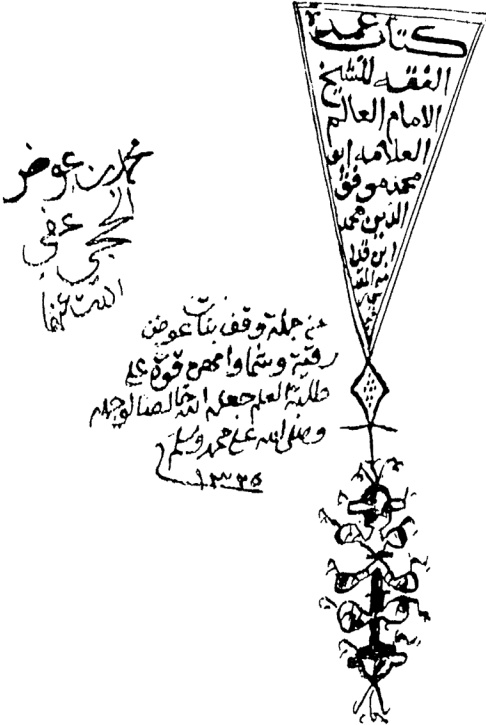 كتاب عمدة
الفقه للشيخ
الامام العالم
العلامة ابو
محمد موفق
الدين محمد
ابن قدا
مه المقد
محمد بن عوض
الحجي عفى
الله عنها
من جملة وقف بنات عوض
رقية وشما وامهن قوة على
طلبة العلم جعله الله خالصا لوجهه
وصلى الله على محمد وسلم
١٣٢٥